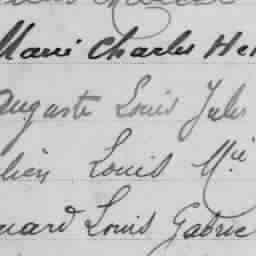 Marie Charles He
Auguste Louis Jules
lien Louis Mie
uard Louis Gabrie